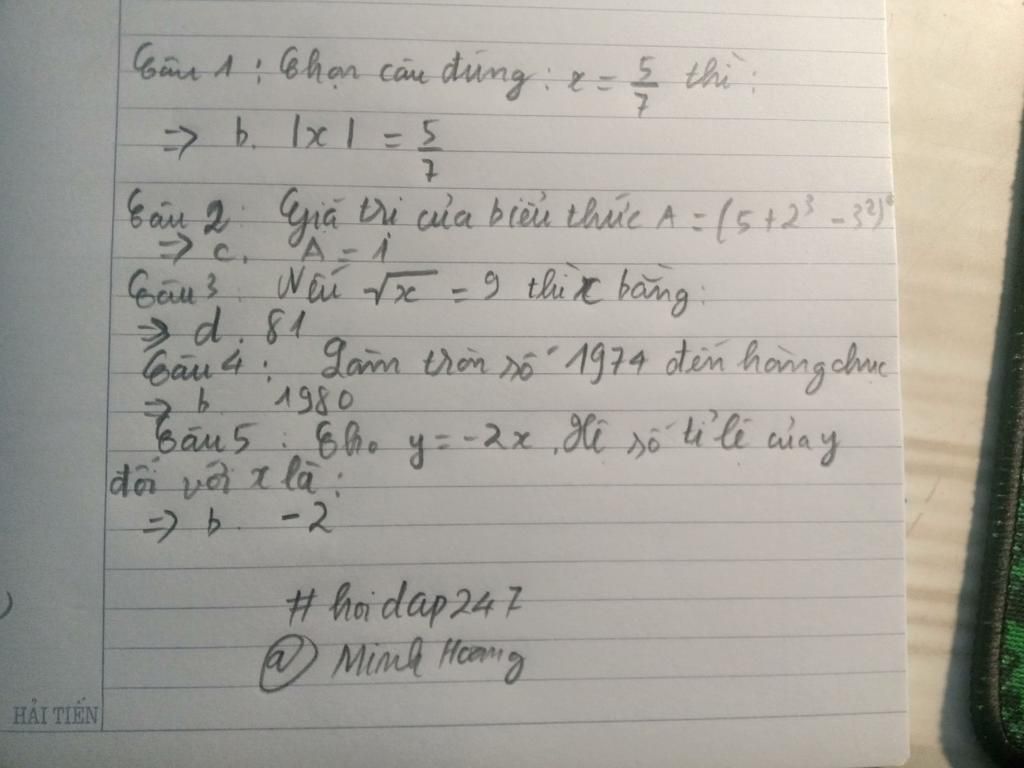 Câu 1 : Chọn câu đúng : x = 5/7 thì :
=> b. |x| = 5/7
Câu 2 : Giá trị của biểu thức A = (5 + 2³ - 3²)⁰
=> c. A = 1
Câu 3 : Nếu √x = 9 thì x bằng :
=> d. 81
Câu 4 : Làm tròn số 1974 đến hàng chục
=> b 1980
Câu 5 : Cho y = -2x . Hệ số tỉ lệ của y
đối với x là :
=> b. -2
#hoidap247
@ Minh Hoang
HẢI TIẾN